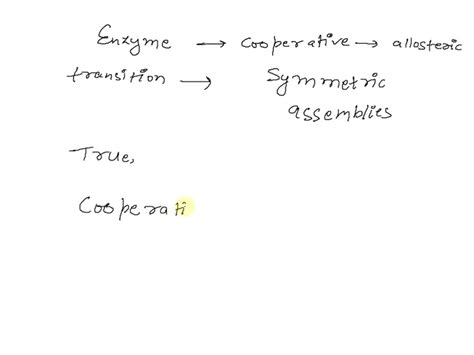 Enzyme → cooperative → allosteric
transition → Symmetric
assemblies
True,
Cooperati